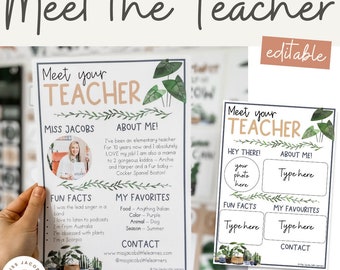 Meet the Teacher
editable
Meet your
TEACHER
MISS JACOBS
ABOUT ME!
I've been an elementary teacher
for 10 years now and I absolutely
LOVE my job! I am also a mama
to 2 gorgeous kiddos - Archie
and Harper and a fur baby -
Cocker Spaniel Boston!
FUN FACTS
I was the lead singer in a
band
I love to listen to podcasts
I'm from Australia
I'm obsessed with plants
I'm a Scorpio!
MY FAVORITES
Food - Anything Italian
Color - Purple
Animal - Dog
Season - Summer
CONTACT
Meet your
TEACHER
HEY THERE!
ABOUT ME!
your
photo
here
Type here
FUN FACTS
MY FAVORITES
Type here
Type here
CONTACT